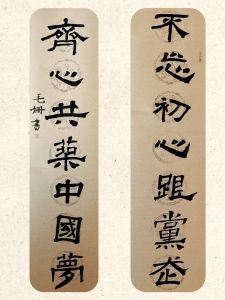 不忘初心跟黨走
齊心共築中國夢
毛姗書